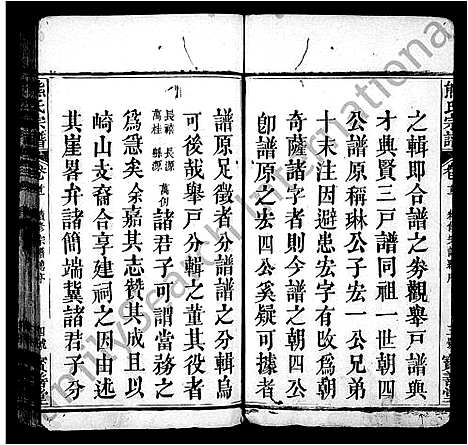 熊氏宗譜
卷首
之輯即合譜之券觀舉戶譜與
才典賢三戶譜同祖一世朝四
公譜原稱琳公子宏一公兄弟
十未注因避患宏字有改爲朝
奇薩諸字者則今譜之朝四公
卽譜原之宏四公奚疑可據者
譜原足徵者分譜譜之分輯烏
可後哉舉戶分輯之董其役者
長禎 長源 萬桂 縣源 萬創 諸君子可謂當務之
爲急矣余嘉其志贊其成且以
崎山支裔合享建祠之因由述
其崖畧弁諸簡端冀諸君子分
熊氏宗譜
卷首
寶善堂
FamilySearch International